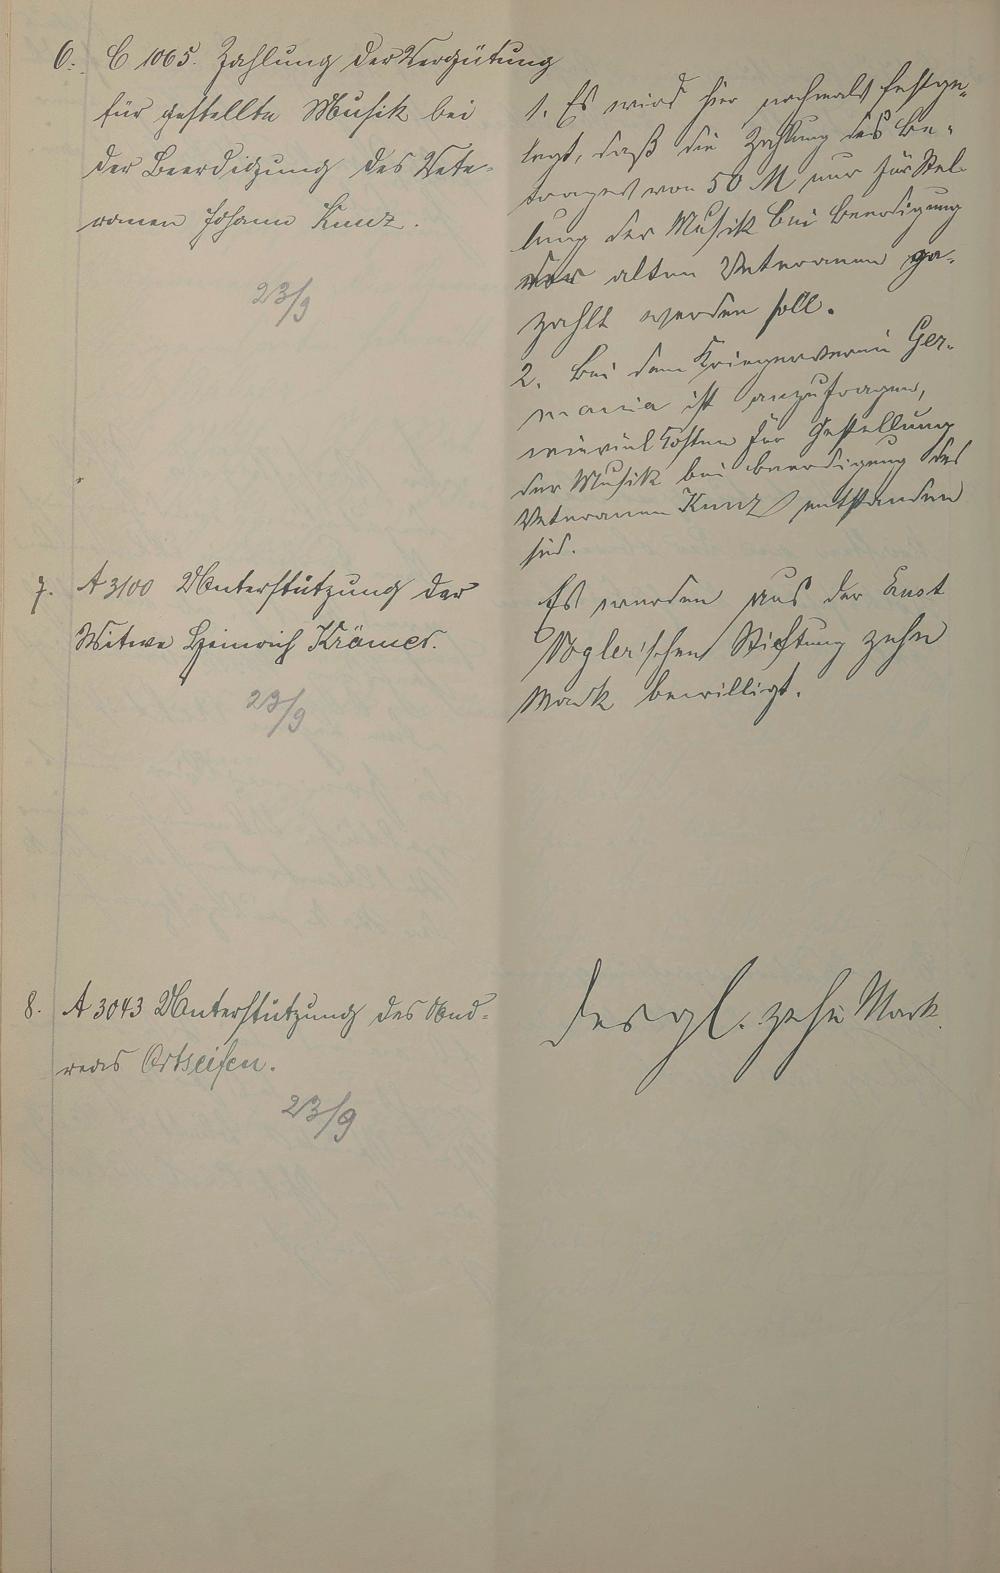 6. C 1065. Zahlung der Vergütung
für gestellte Musik bei
der Beerdigung des Vete-
ranen Johann Kunz.
23/9
1. Es wird hier nochmals festge-
legt, daß die Zahlung des Be-
trages von 50 M nur für Stel-
lung der Musik bei Beerdigung
der alten Veteranen ge-
zahlt werden soll.
2. Bei dem Kriegerverein Ger-
mania ist anzufragen,
wieviel Kosten für Gestellung
der Musik bei Beerdigung des
Veteranen Kunz entstanden
sind.
7. A 3100 Unterstützung der
Witwe Heinrich Krämer.
23/9
Es werden aus der
Vogler'schen Stiftung zehn
Mark bewilligt.
8. A 3043 Unterstützung des And-
reas Ortseifen.
23/9
desgl. zehn Mark.